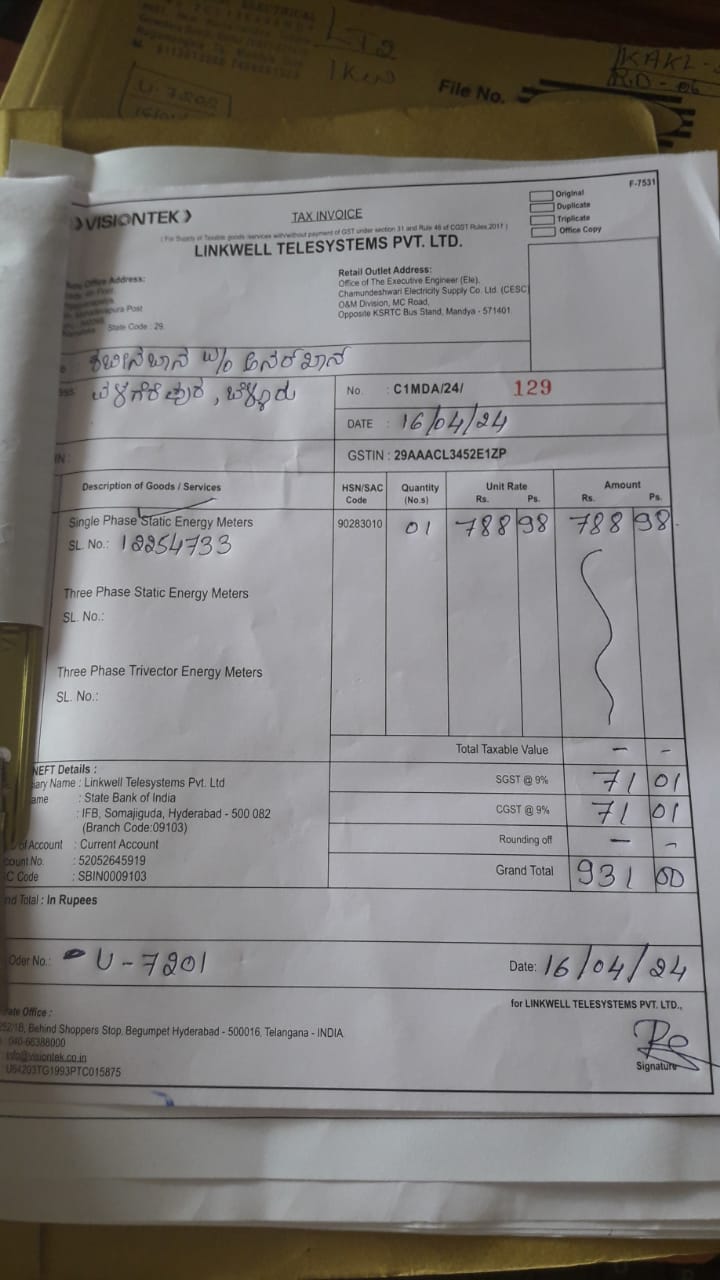 LT2
1Kw
U-7202
File No.
RD-06
F-7531
VISIONTEK
TAX INVOICE
Original
Duplicate
Triplicate
Office Copy
( For Supply of Taxable goods /services with/without payment of GST under section 31 and Rule 46 of CGST Rules 2017 )
LINKWELL TELESYSTEMS PVT. LTD.
Office Address:
Post
State Code : 29.
Retail Outlet Address:
Office of The Executive Engineer (Ele),
Chamundeshwari Electricity Supply Co. Ltd. (CESC)
O&M Division, MC Road,
Opposite KSRTC Bus Stand, Mandya - 571401.
W/o
No. : C1MDA/24/ 129
DATE : 16/04/24
GSTIN : 29AAACL3452E1ZP
Description of Goods / Services HSN/SAC Code Quantity (No.s) Unit Rate Rs. Ps. Amount Rs. Ps.
Single Phase Static Energy Meters 90283010 01 788 98 788 98
SL. No.: 12254733
Three Phase Static Energy Meters
SL. No.:
Three Phase Trivector Energy Meters
SL. No.:
Total Taxable Value - -
NEFT Details :
iary Name : Linkwell Telesystems Pvt. Ltd
ame : State Bank of India
: IFB, Somajiguda, Hyderabad - 500 082
(Branch Code:09103)
of Account : Current Account
count No. : 52052645919
C Code : SBIN0009103
SGST @ 9% 71 01
CGST @ 9% 71 01
Rounding off - -
Grand Total 931 00
nd Total : In Rupees
Oder No.: U-7201
Date: 16/04/24
for LINKWELL TELESYSTEMS PVT. LTD.,
rate Office :
252/1B, Behind Shoppers Stop, Begumpet Hyderabad - 500016, Telangana - INDIA.
: 040-66388000
info@visiontek.co.in
U64203TG1993PTC015875
Signature